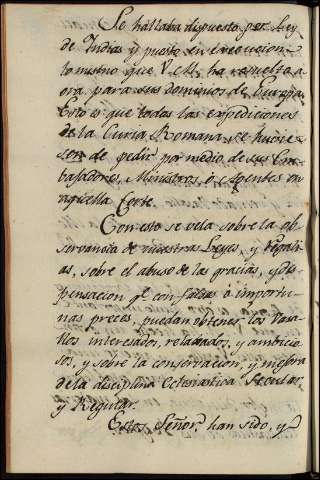 Se hallaba dispuesto por Ley
de Indias y puesto en execucion
lo mismo que V.M. ha resuelto a
ora para sus dominios de Europa.
Esto es que todas las expediciones
de la Curia Romana, se huvie
sen de pedir por medio de sus Em
bajadores, Ministros, ò Agentes en
aquella Corte.
Con esto se vela sobre la ob
servancia de nuestras Leyes, y regali
as, sobre el abuso de las gracias, y dis
pensacion q.e con falsas o importu
nas preces, puedan obtener los Vasa
llos interesados, relaxados, y ambicio
sos, y sobre la conservacion, y mejora
de la disciplina Eclesiastica Secular,
y Regular.
Estos, Señor, han sido, y